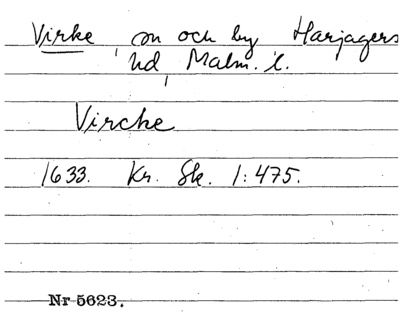 Virke, sn och by Harjagers
hd, Malm. l.
Vircke
1633. Kr. Sk. 1:475.
Nr 5623.